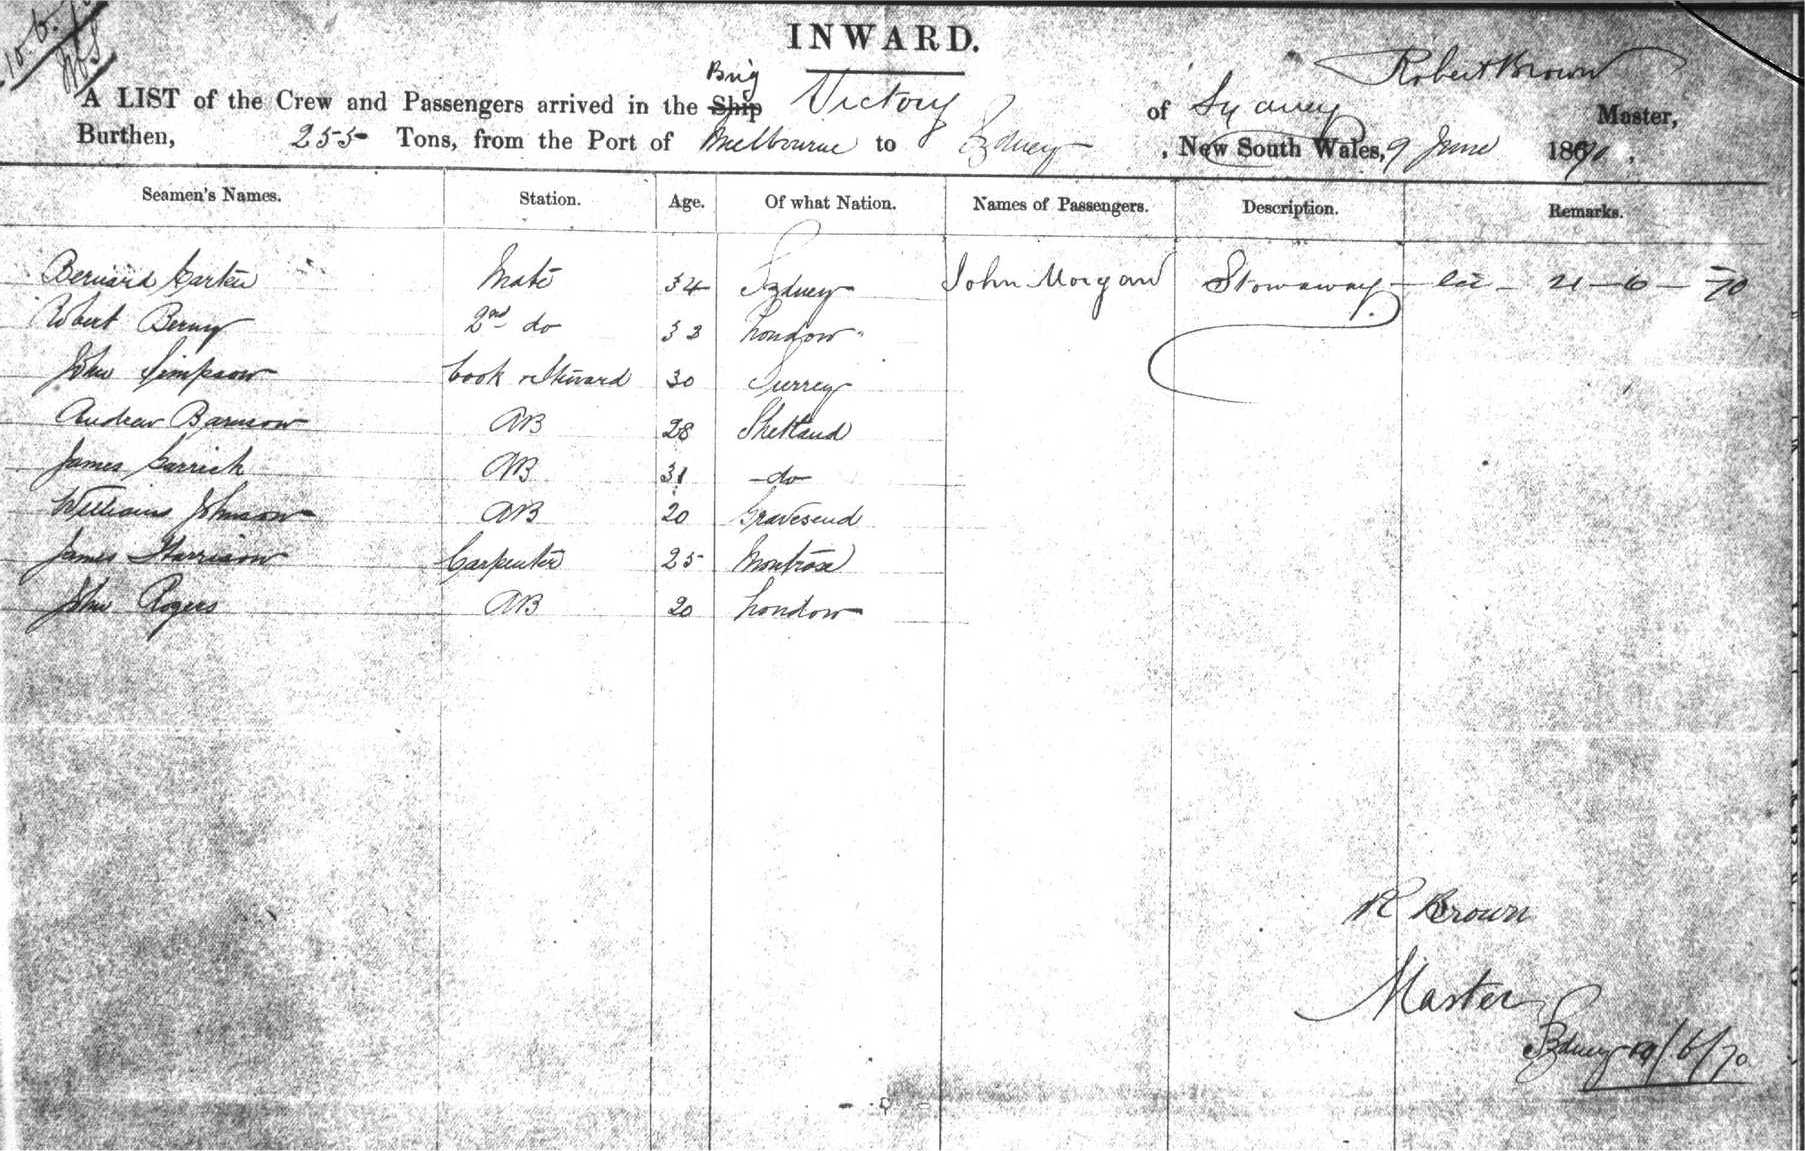 10.6.70
INWARD.
Brig
Robert Brown
A LIST of the Crew and Passengers arrived in the Ship Victory of Sydney Master,
Burthen, 255 Tons, from the Port of Melbourne to Sydney , New South Wales, 9 June 1870.
Seamen's Names. Station. Age. Of what Nation. Names of Passengers. Description. Remarks.
Bernard Carter Mate 34 Sydney John Morgan Stowaway - - 21-6-70
Robert 2nd do 33 London
John Simpson Cook & Steward 30 Surrey
Andrew AB 28 Shetland
James Garrick AB 31 do
William Johnson AB 20 Gravesend
James Harrison Carpenter 25 Montrose
John Rogers AB 20 London
R Brown
Master
Sydney /6/70